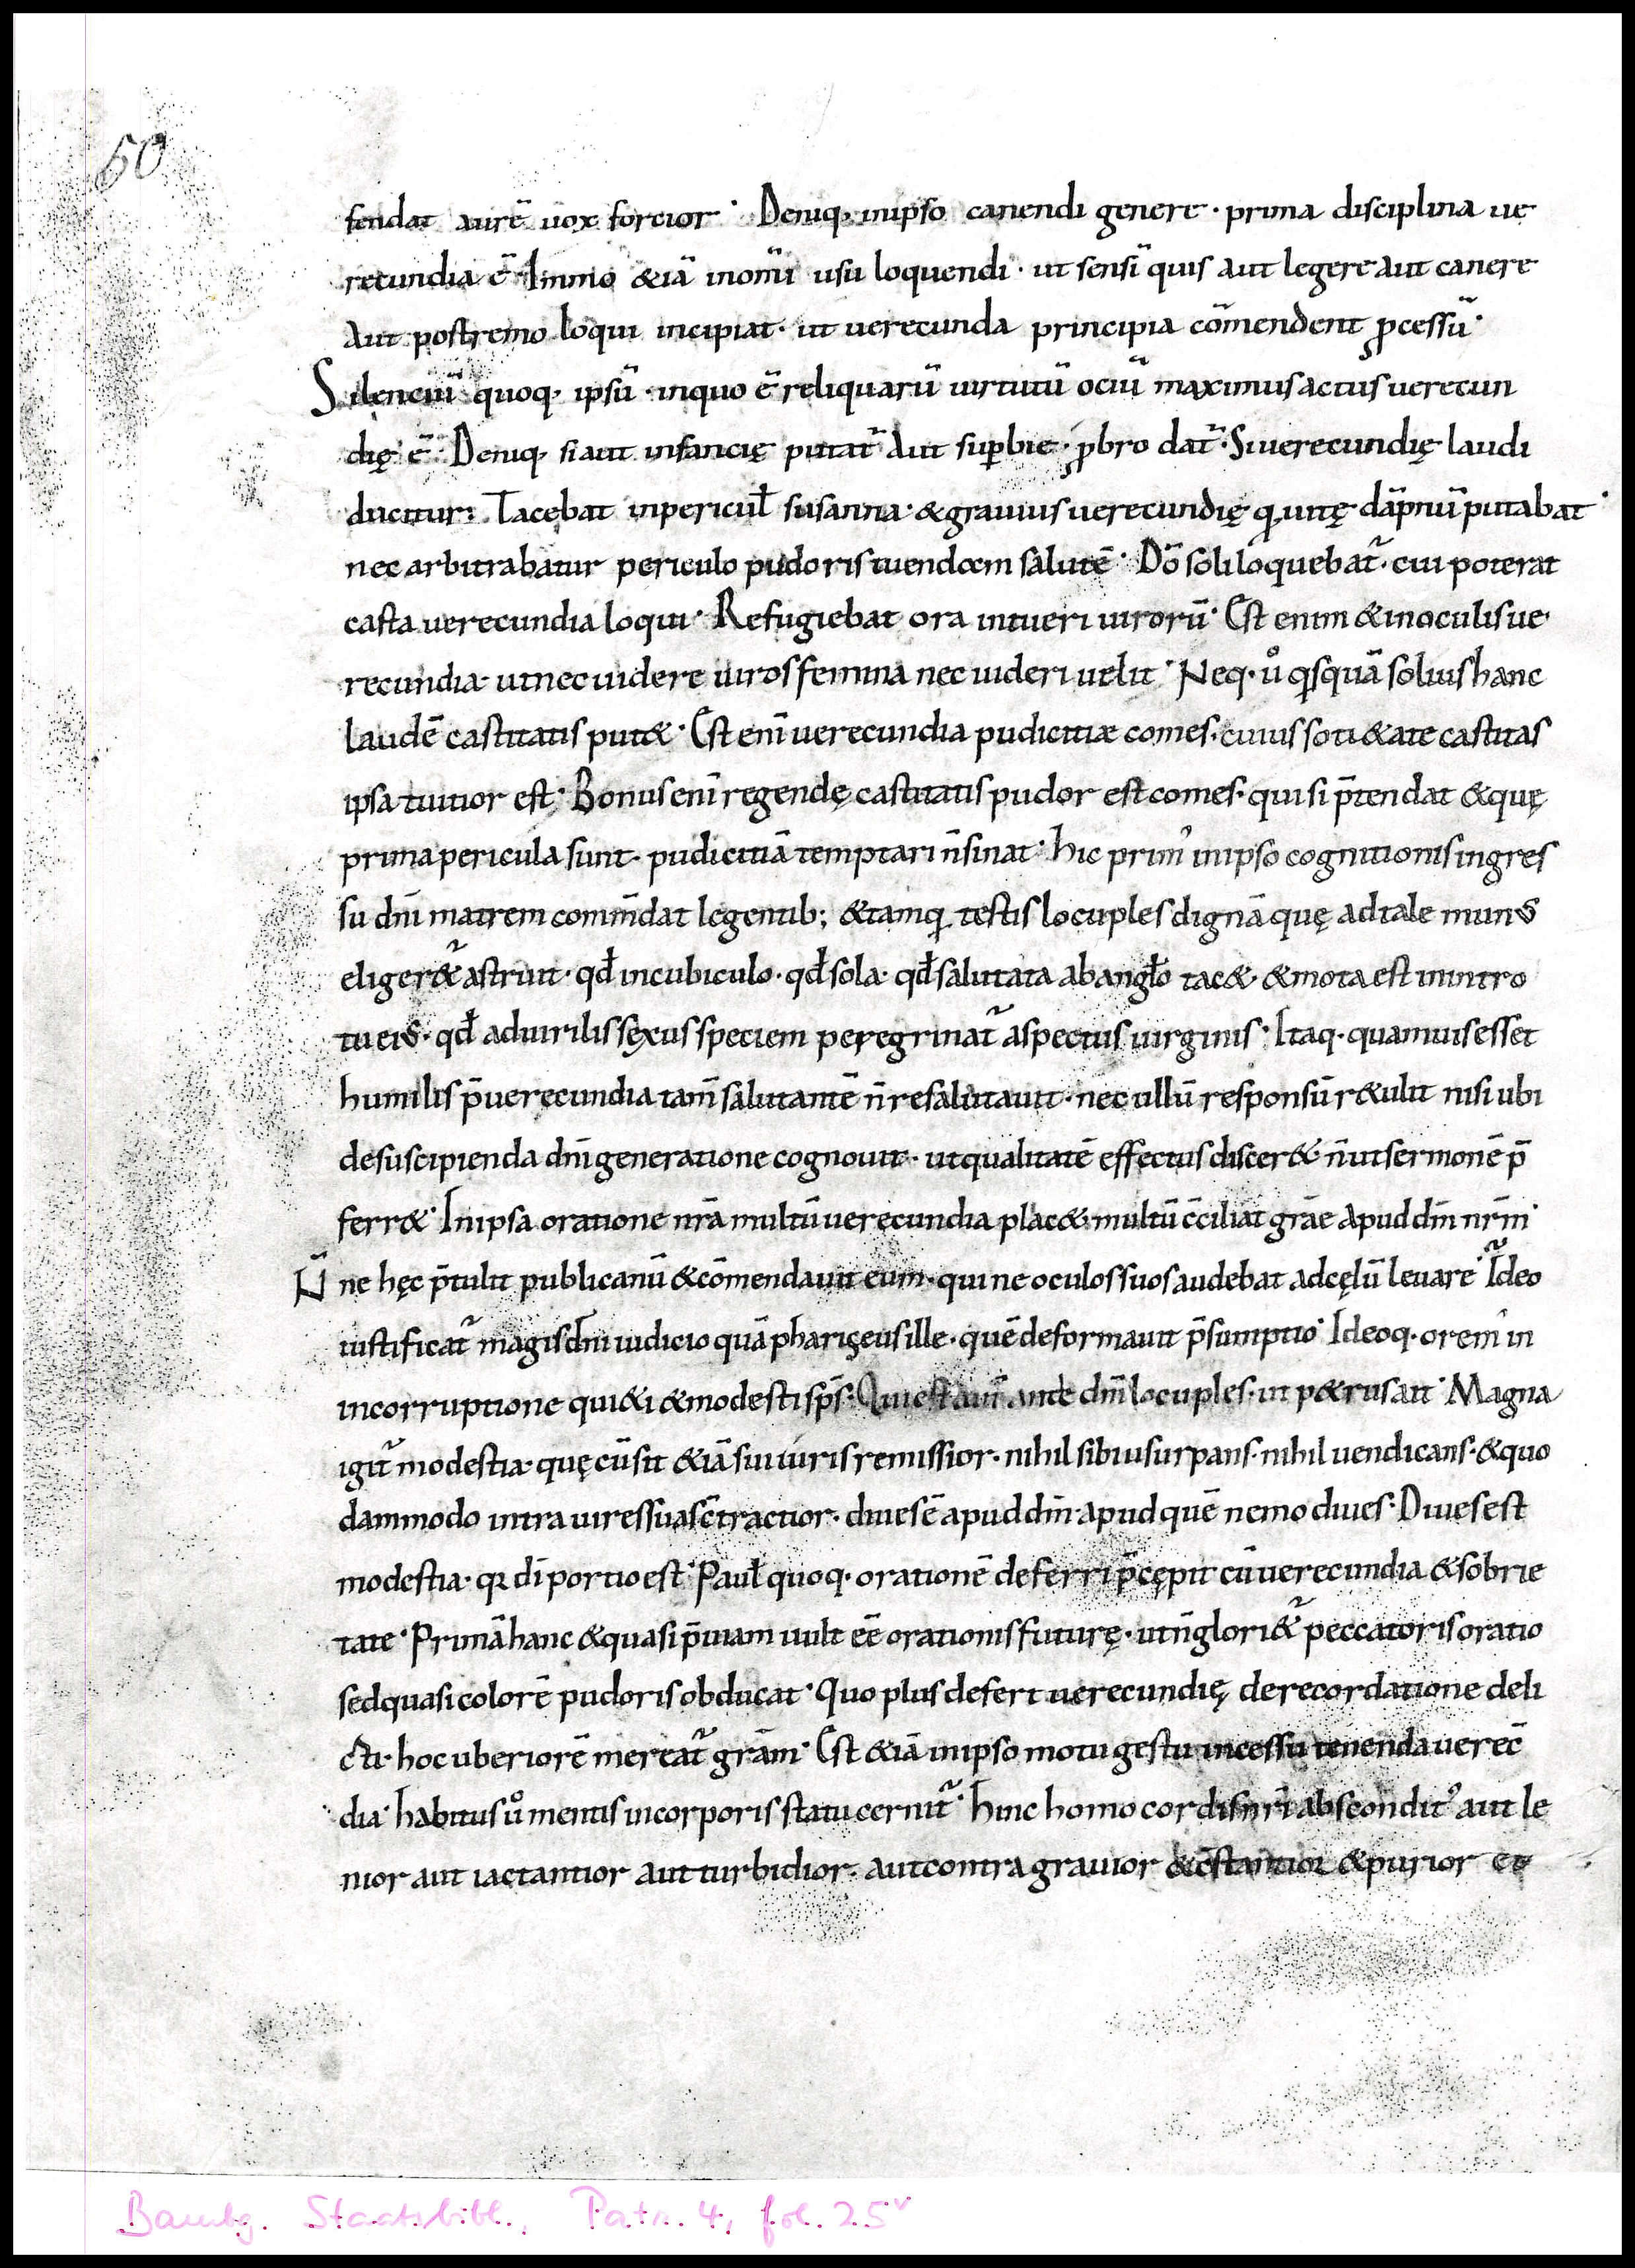 50
fendat aurē uox forcior· Deniq· inipso canendi genere· prima disciplina ue
recundia ē· Immo &iā inomī usu loquendi· ut sensī quis aut legere aut canere
Aut postremo loqui incipiat· ut uerecunda principia cōmendent ꝓcessū·
Silenciū quoq· ipsū· inquo ē reliquarū uirtutū ociū maximus actus uerecun
dię ē· Deniq· si aut infancię putat᷑ Aut suꝑbie· ꝓbro dat᷑· Si uerecundię laudi
ducitur· Tacebat inpericuł susanna· &grauius uerecundię q̄ uitę dāpnū putabat·
nec arbitrabatur periculo pudoris tuendam salutē· Dō soli loquebat᷑· cui poterat
casta uerecundia loqui· Refugiebat ora intueri uirorū· Est enim &inoculis ue
recundia· utnec uidere uiros femina nec uideri uelit· Neq· uͦ qͥsquā solius hanc
laudē castitatis put&· Est enī uerecundia pudicitiæ comes· cuius soti&ate castitas
ipsa tuitior est· Bonus enī regendę castitatis pudor est comes· qui si p̄tendat &quę
prima pericula sunt· pudicitiā temptari n̄ sinat· hic prim̉ inipso cognitionis ingres
su dnī matrem comm̄dat legentib; &tamq̄ testis locuples dignā quę ad tale munꝰ
eliger&᷑ astruit· qđ incubiculo· qđ sola· qđ salutata ab angło tac&· &mota est inintro
tu eiꝰ· qđ aduirilis sexus speciem peregrinat᷑ aspectus uirginis· Itaq· quamuis esset
humilis p̄ uerecundia tam̄ salutantē n̄ resalutauit· nec ullū responsū r&ulit nisi ubi
desuscipienda dnī generatione cognouit· utqualitatē effectus discer& n̄ ut sermonē p̄
ferr&· Inipsa oratione nr̄a multū uerecundia plac&· multū c̄ciliat grāe apud dm̄ nr̄m·
N̄ ne hęc p̄tulit publicanū &cōmendauit eum· qui ne oculos suos audebat adcęlū leuare· Ideo
iustificat᷑ magis dnī iudicio quā pharięus ille· quē deformauit p̄sumptio· Ideoq· orem̉ in
incorruptione qui&i &modesti sps̄· Qui est aut̄ ante dm̄ locuples· ut p&rus ait· Magna
igit᷑ modestia· quę cū sit &iā sui iuris remissior· nihil sibi usurpans· nihil uendicans· &quo
dammodo intra uires suas c̄tractior· diues ē apud dm̄· apud quē nemo diues· Diues est
modestia· qꝛ dī portio est· Pauł quoq· orationē deferri p̄cępit cū uerecundia &sobrie
tate· Primā hanc &quasi p̄uiam uult ēe orationis futurę· utn̄ glori&᷑ peccatoris oratio
sed quasi colorē pudoris obducat· Quo plus defert uerecundię de recordatione deli
cti· hoc uberiorē mereat᷑ grām· Est &iā inipso motu gestu incessu tenenda uerec̄
dia· habitus uͦ mentis incorporis statu cernit᷑· hinc homo cordis nr̄i absconditꝰ aut le
uior aut iactantior aut turbidior· aut contra grauior &c̄stantior &purior et
Bambg. Staatsbibl., Patr. 4, fol. 25v